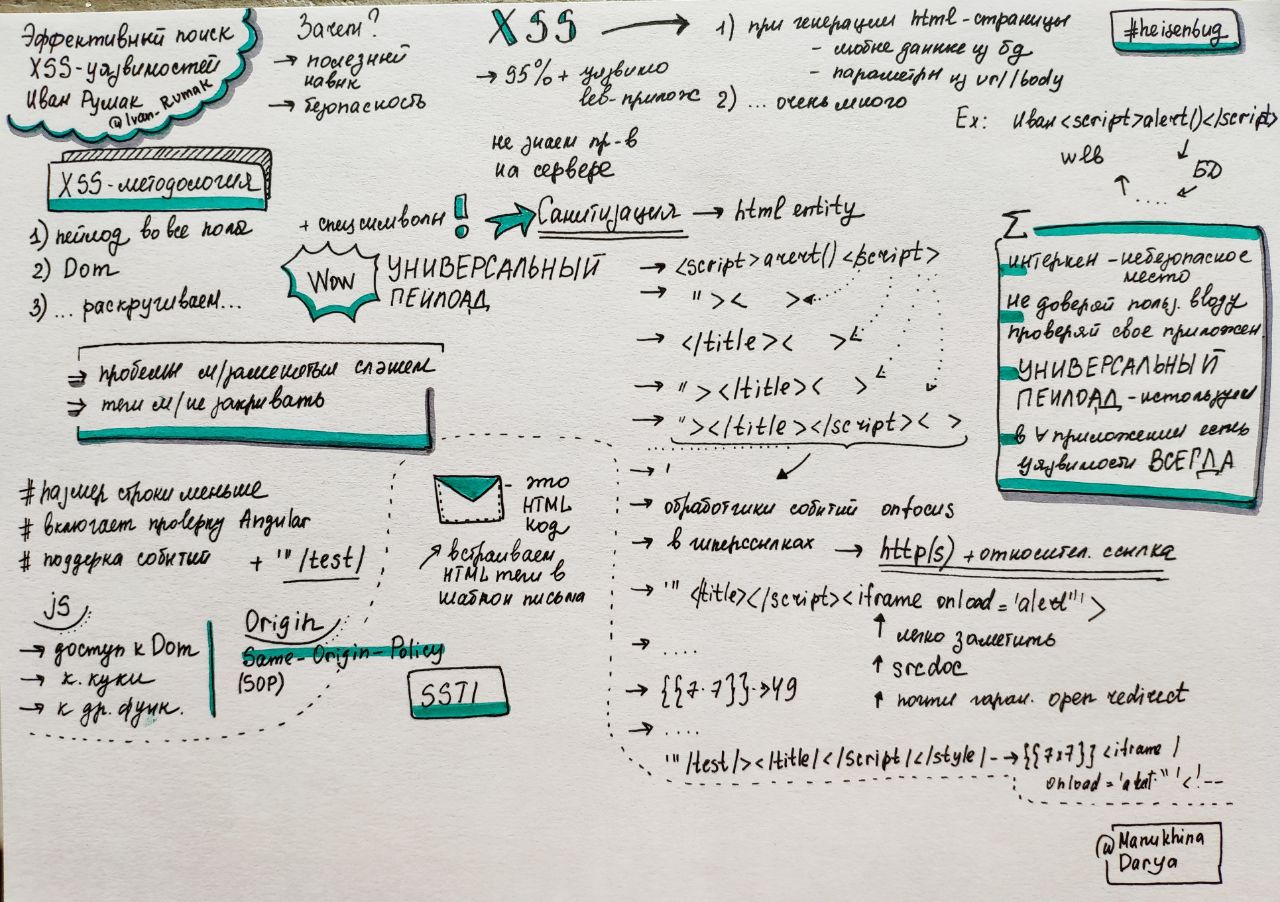 Эффективный поиск
XSS-уязвимостей
Иван Румак
@Ivan-Rumak
Зачем?
→ полезный
навык
→ безопасность
XSS
→ 95% + уязвимо
веб-прилож
1) при генерации html-страницы
- любые данные из бд
- параметры из url/body
2) ... очень много
#heisenbug
Ex: Иван<script>alert()</script>
web
БД
не знаем пр-в
на сервере
XSS-методология
1) пейлод во все поля
2) Dom
3) ... раскручиваем...
+ спецсимволы !
Санитизация → html entity
Wow
УНИВЕРСАЛЬНЫЙ
ПЕЙЛОАД
→ <script>alert()</script>
→ "><   >
→ </title><   >
→ "></title><   >
→ "></title></script><   >
Σ
интернет - небезопасное
место
не доверяй польз. вводу
проверяй свое приложен.
УНИВЕРСАЛЬНЫЙ
ПЕЙЛОАД - используем
в ∀ приложении есть
уязвимости ВСЕГДА
⇒ пробелы м/заменять слэшем
⇒ теги м/не закрывать
# размер строки меньше
# включает проверку Angular
# поддержка событий + '"/test/
- это
HTML
код
встраиваем
HTML теги в
шаблон письма
→ '
→ обработчики событий onfocus
→ в гиперссылках → http(s) + относител. ссылка
→ '" </title></script><iframe onload='alert"'>
↑ легко заметить
↑ srcdoc
↑ почти гаран. open redirect
→ ....
→ {{7·7}}→49
→ ....
'"/test/></title/</script/</style/--→{{7x7}}<iframe/
onload='alert"'<!--
js
→ доступ к Dom
→ к. куки
→ к др. функ.
Origin
Same-Origin-Policy
(SOP)
SSTI
@Manukhina
Darya